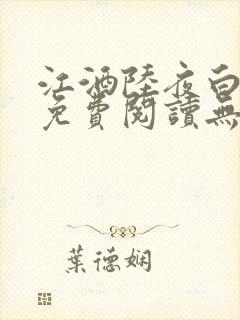 江酒陸夜白
免費閱讀無
葉德嫻